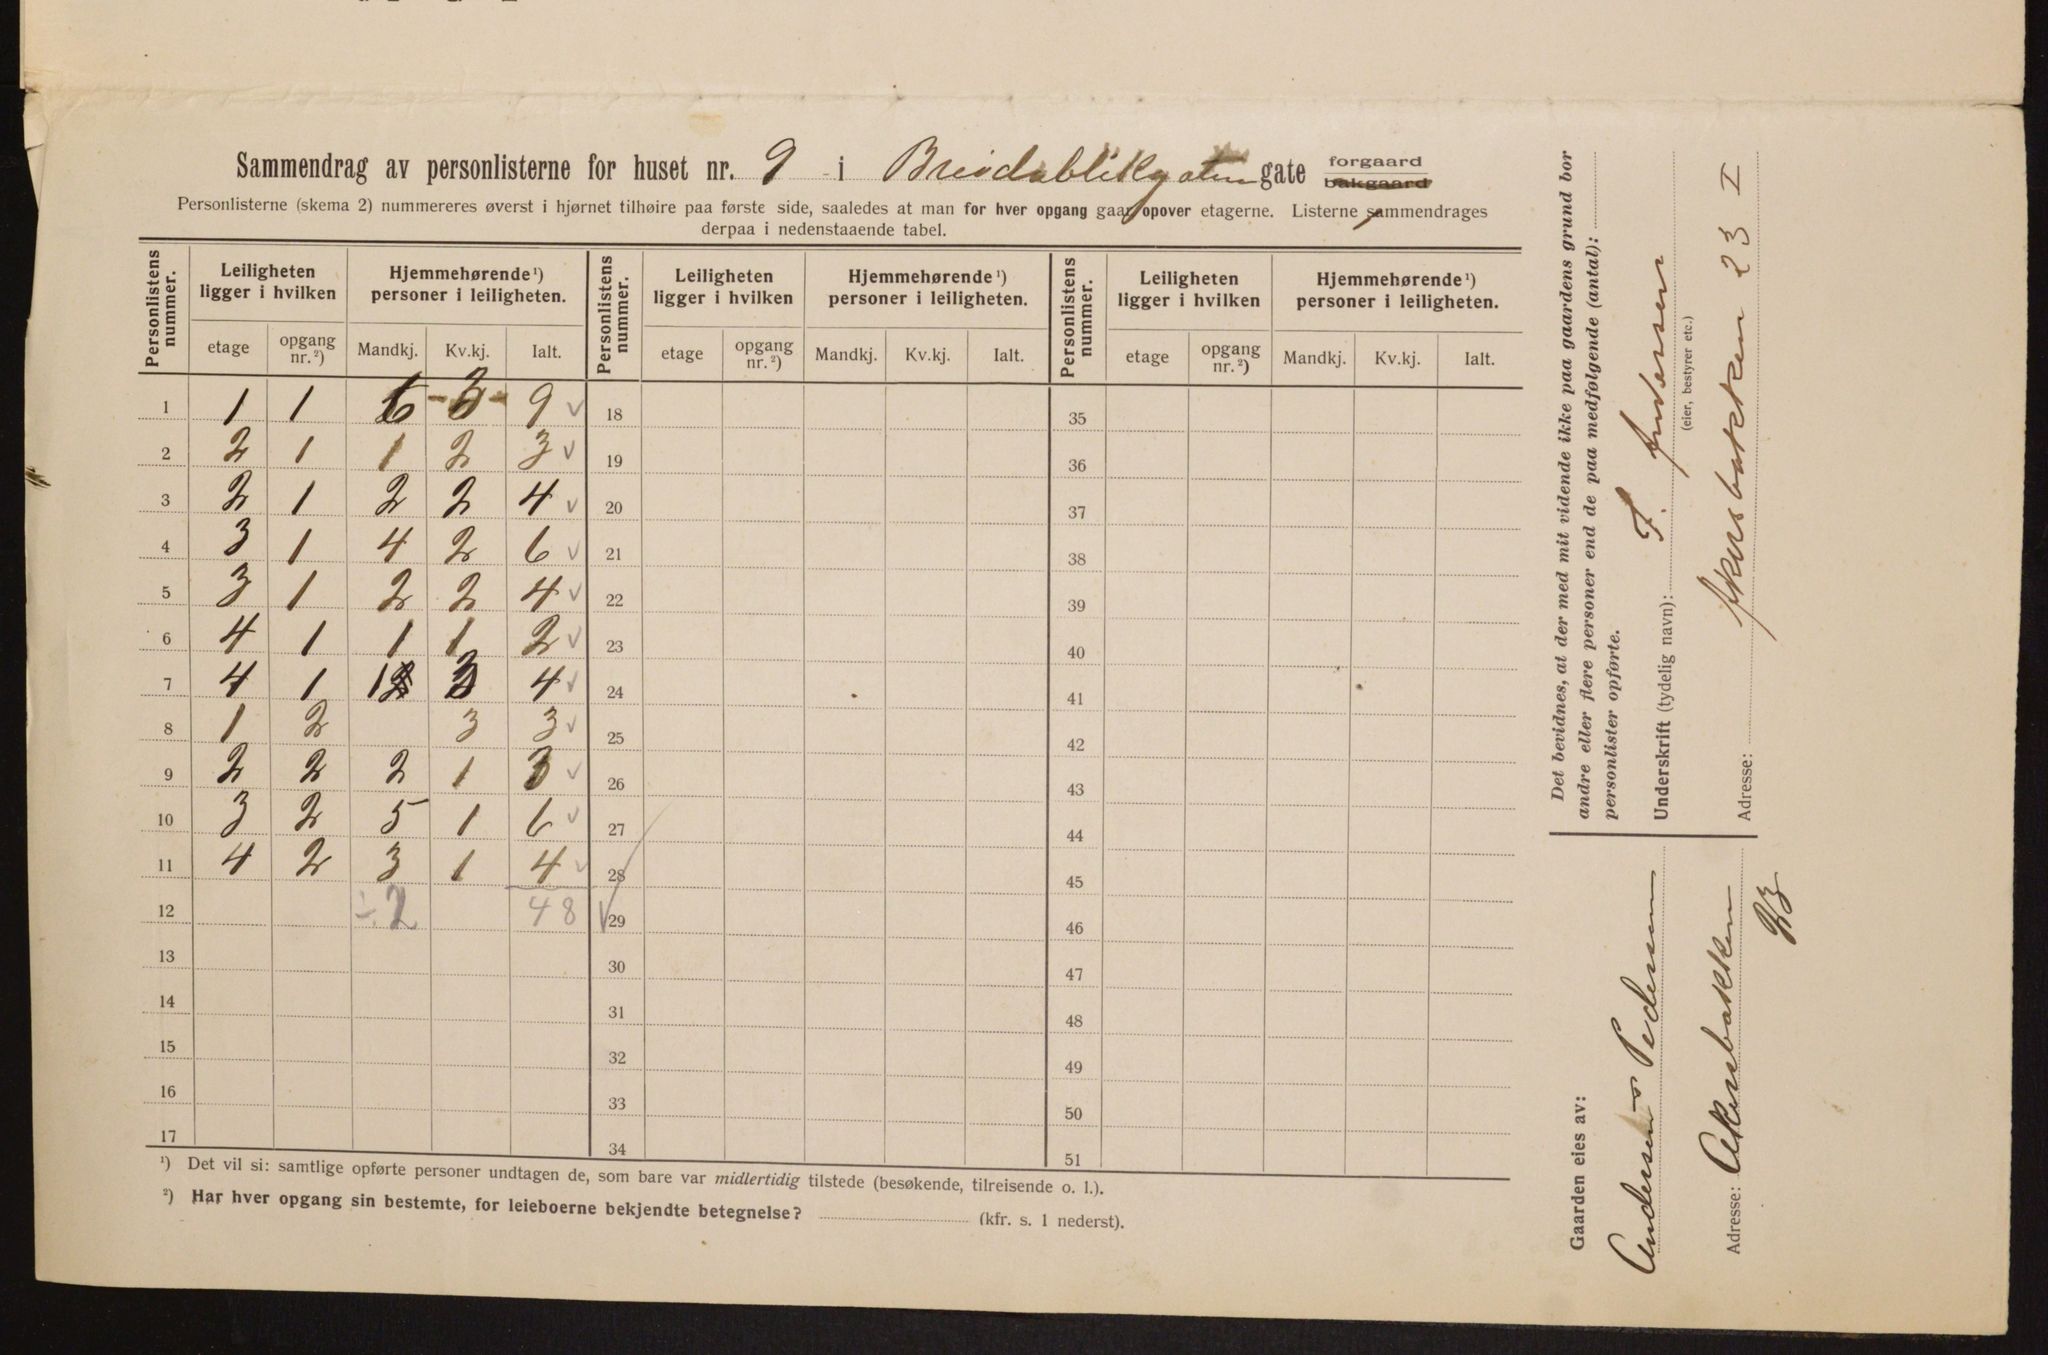 Sammendrag av personlisterne for huset nr. 9 i Breidablikgaten gate forgaard
bakgaard
Personlisterne (skema 2) nummereres øverst i hjørnet tilhøire paa første side, saaledes at man for hver opgang gaar opover etagerne. Listerne sammendrages
derpaa i nedenstaaende tabel.
Personlistens nummer. Leiligheten ligger i hvilken Hjemmehørende ¹) personer i leiligheten. Personlistens nummer. Leiligheten ligger i hvilken Hjemmehørende ¹) personer i leiligheten. Personlistens nummer. Leiligheten ligger i hvilken Hjemmehørende ¹) personer i leiligheten.
etage opgang nr. ²) Mandkj. Kv.kj. Ialt. etage opgang nr. ²) Mandkj. Kv.kj. Ialt. etage opgang nr. ²) Mandkj. Kv.kj. Ialt.
1 1 1 6 3 9 18 35
2 2 1 1 2 3 19 36
3 2 1 2 2 4 20 37
4 3 1 4 2 6 21 38
5 3 1 2 2 4 22 39
6 4 1 1 1 2 23 40
7 4 1 1 3 4 24 41
8 1 2 3 3 25 42
9 2 2 2 1 3 26 43
10 3 2 5 1 6 27 44
11 4 2 3 1 4 28 45
12 ÷2 48 29 46
13 30 47
14 31 48
15 32 49
16 33 50
17 34 51
¹) Det vil si: samtlige opførte personer undtagen de, som bare var midlertidig tilstede (besøkende, tilreisende o. l.).
²) Har hver opgang sin bestemte, for leieboerne bekjendte betegnelse? (kfr. s. 1 nederst).
Det bevidnes, at der med mit vidende ikke paa gaardens grund bor
andre eller flere personer end de paa medfølgende (antal):
personlister opførte.
Underskrift (tydelig navn): F. Andersen
(eier, bestyrer etc.)
Adresse: Akersbakken 23 I
Gaarden eies av:
Andersen Pedersen
Adresse: Akersbakken
23